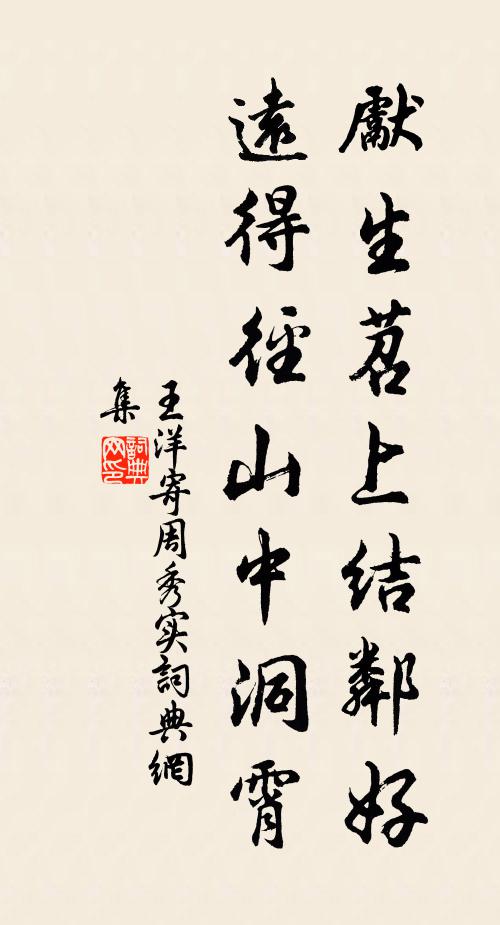 獻生苕上結鄰好
遠得徑山中洞霄
王洋寄周秀实詞典網
集
詞典網印